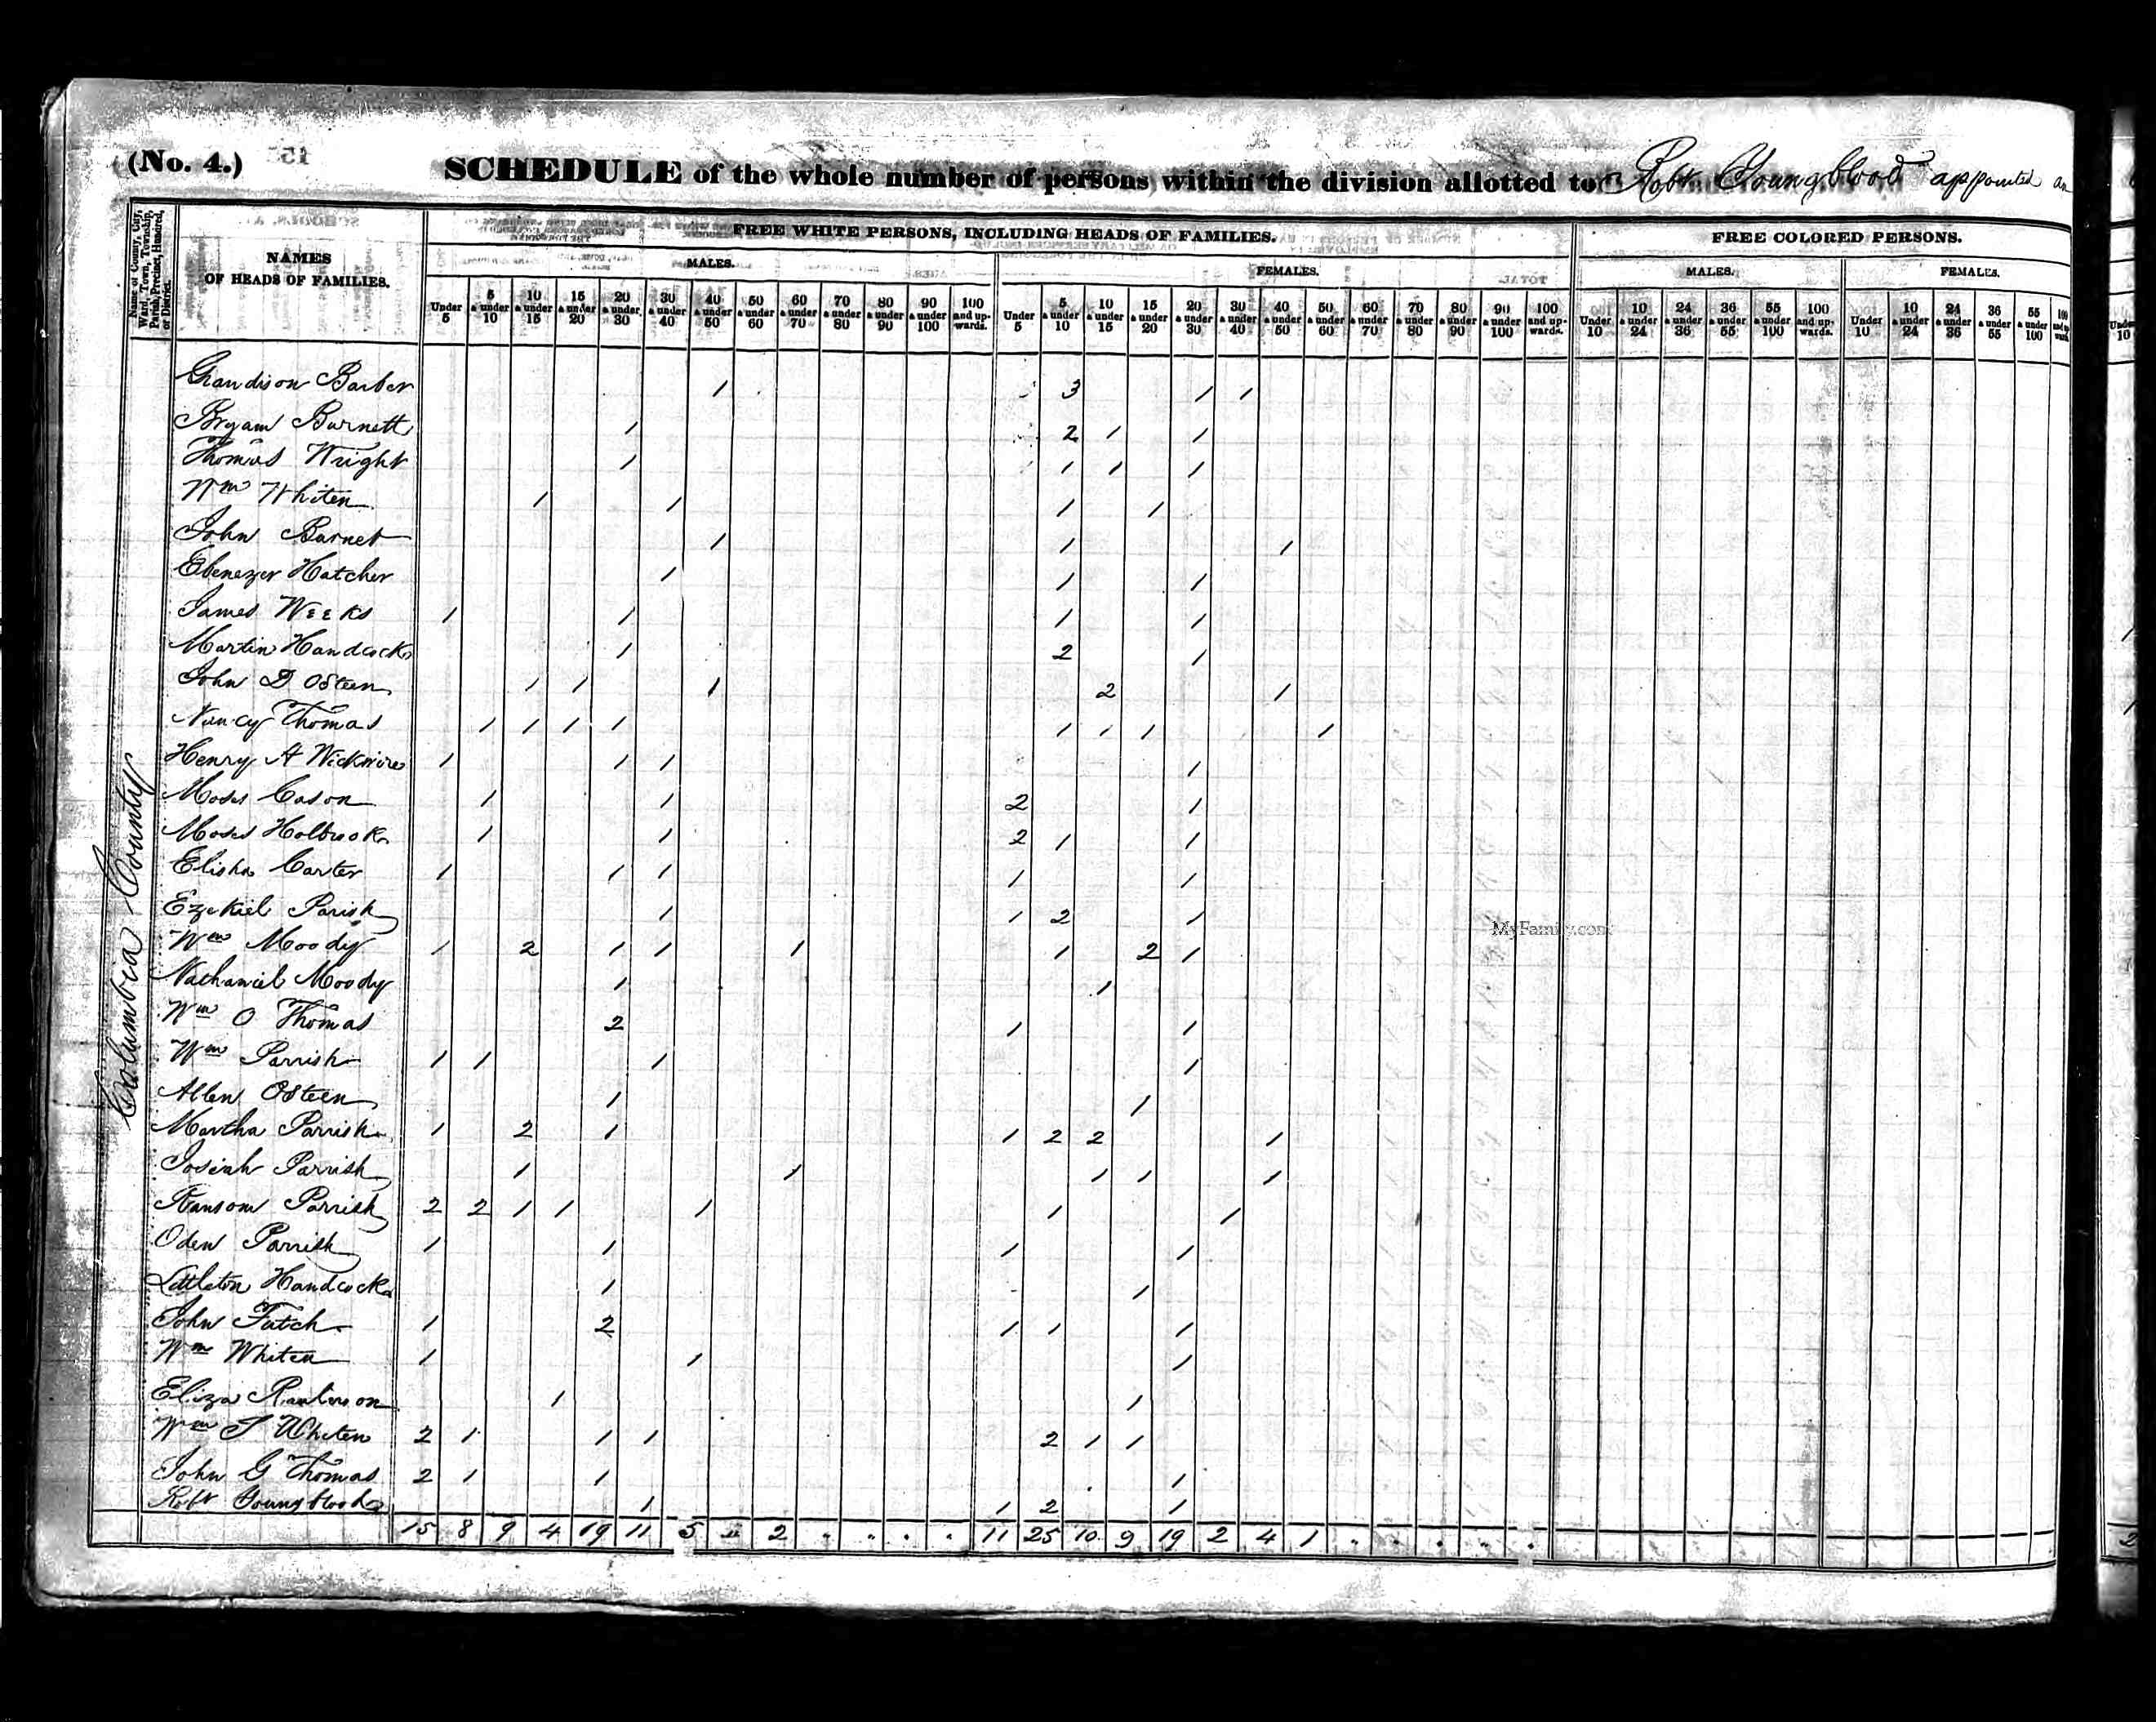 (No. 4.)
SCHEDULE of the whole number of persons within the division allotted to Robt. Youngblood appointed an
Name of County, City, Ward, Town, Township, Parish, Precinct, Hundred, or District.
NAMES
OF HEADS OF FAMILIES.
FREE WHITE PERSONS, INCLUDING HEADS OF FAMILIES.
FREE COLORED PERSONS.
MALES. FEMALES. MALES. FEMALES.
Under 5 5 & under 10 10 & under 15 15 & under 20 20 & under 30 30 & under 40 40 & under 50 50 & under 60 60 & under 70 70 & under 80 80 & under 90 90 & under 100 100 and upwards. Under 5 5 & under 10 10 & under 15 15 & under 20 20 & under 30 30 & under 40 40 & under 50 50 & under 60 60 & under 70 70 & under 80 80 & under 90 90 & under 100 100 and upwards. Under 10 10 & under 24 24 & under 36 36 & under 55 55 & under 100 100 and upwards. Under 10 10 & under 24 24 & under 36 36 & under 55 55 & under 100 100
Columbia County
Grandison Barber 1 3 1 1
Bryam Burnett 1 2 1 1
Thomas Wright 1 1 1 1
Wm Whiten 1 1 1 1
John Barnet 1 1 1
Ebenezer Hatcher 1 1 1
James Weeks 1 1 1 1
Martin Handcock 1 2 1
John D Osteen 1 1 1 2 1
Nancy Thomas 1 1 1 1 1 1 1 1
Henry A Wickwire 1 1 1 1
Moses Cason 1 1 2 1
Moses Holbrook 1 1 2 1 1
Elisha Carter 1 1 1 1 1
Ezekiel Parish 1 1 2 1
Wm Moody 1 2 1 1 1 1 2 1
Nathaniel Moody 1 1
Wm O Thomas 2 1 1
Wm Parrish 1 1 1 1
Allen Osteen 1 1
Martha Parrish 1 2 1 1 2 2 1
Josiah Parrish 1 1 1 1 1
Ransom Parrish 2 2 1 1 1 1 1
Oden Parrish 1 1 1 1
Littleton Handcock 1 1
John Futch 1 2 1 1 1
Wm Whiten 1 1 1
Eliza 1 1
Wm J Whiten 2 1 1 1 2 1 1
John G Thomas 2 1 1 1
Robt Youngblood 1 1 2 1
15 8 9 4 19 11 5 " 2 11 25 10 9 19 2 4 1
MyFamily.com